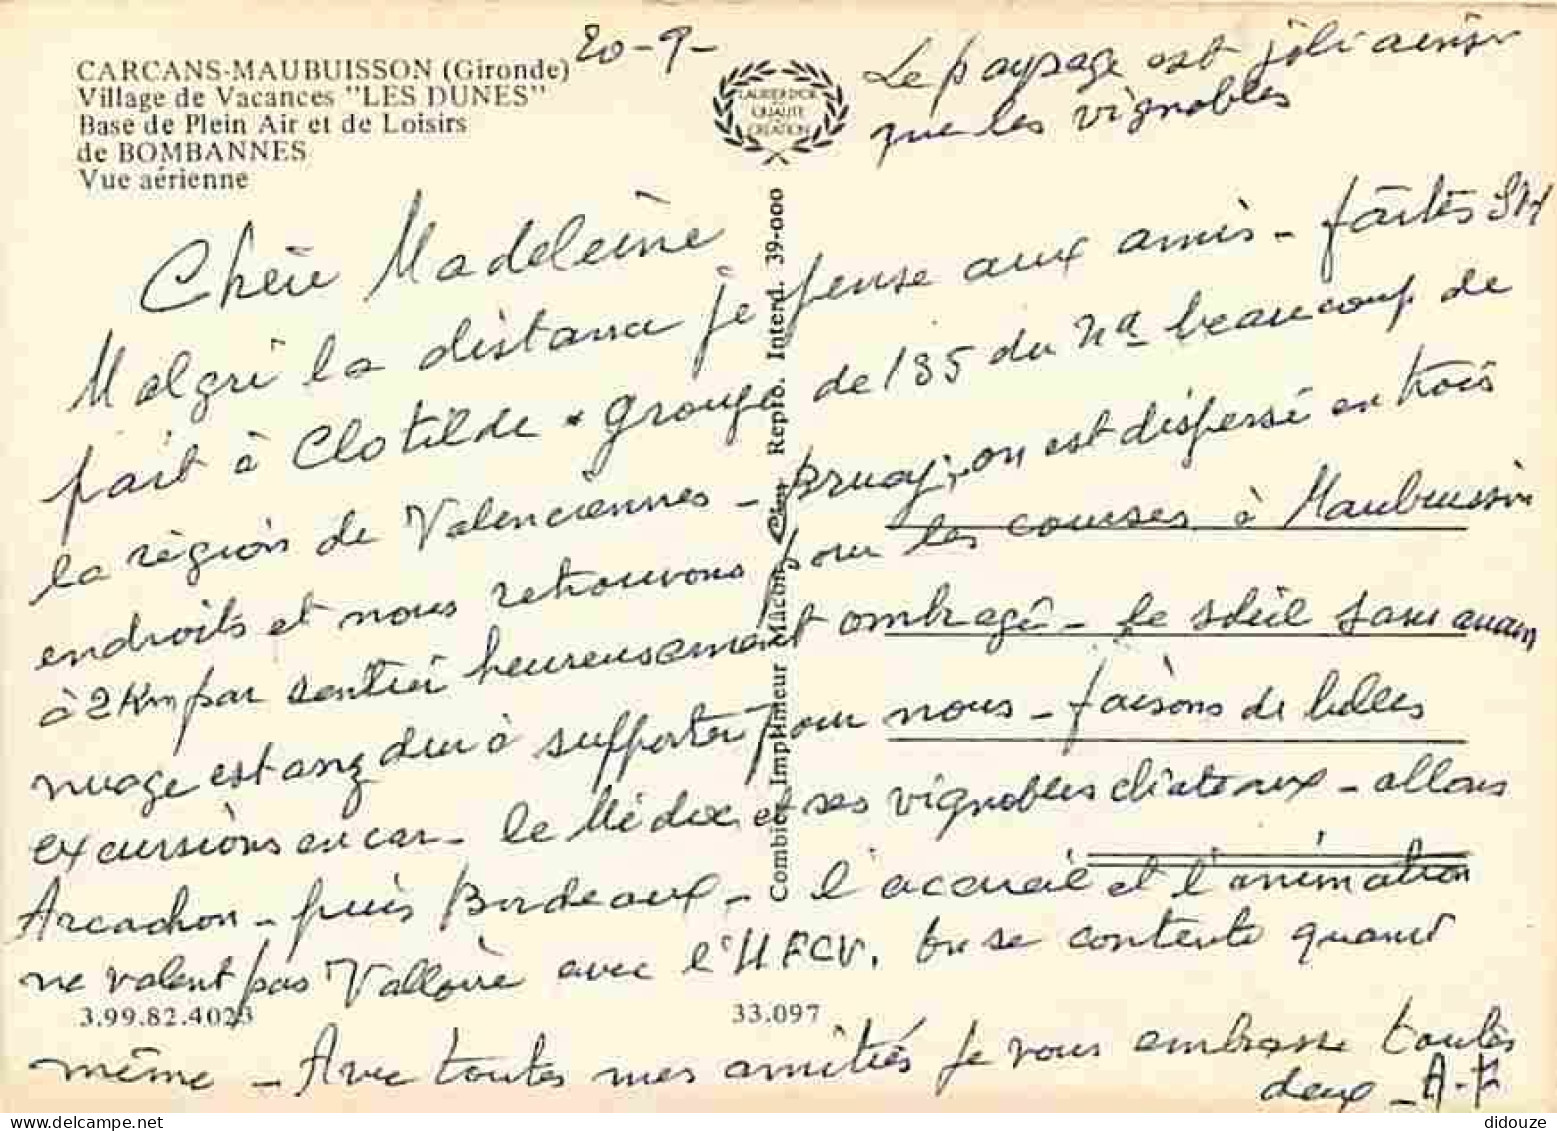 CARCANS-MAUBUISSON (Gironde)
Village de Vacances "LES DUNES"
Base de Plein Air et de Loisirs
de BOMBANNES
Vue aérienne
20-9-
LAURIER D'OR
QUALITÉ
CRÉATION
Le paysage est joli ainsi
que les vignobles
Chère Madeleine
Malgré la distance je pense aux amis - faites
part à Clotilde - groupe de 135 du beaucoup de
la région de Valenciennes - Bruay, on est dispersé en trois
endroits et nous retrouvons pour les courses à Maubuisson
à 2 Km par sentier heureusement ombragé - le soleil sans aucun
nuage est ang dur à supporter pour nous - faisons de belles
excursions en car - le Médoc et ses vignobles châteaux - allons
Arcachon - puis Bordeaux - l'accueil et l'animation
ne valent pas Valloire avec l'UFCV. On se contente quand
même - Avec toutes mes amitiés je vous embrasse toutes
deux - A-F
Combier Imprimeur Mâcon Cim Repro. Interd. 39-000
3.99.82.4023
33.097
didouze